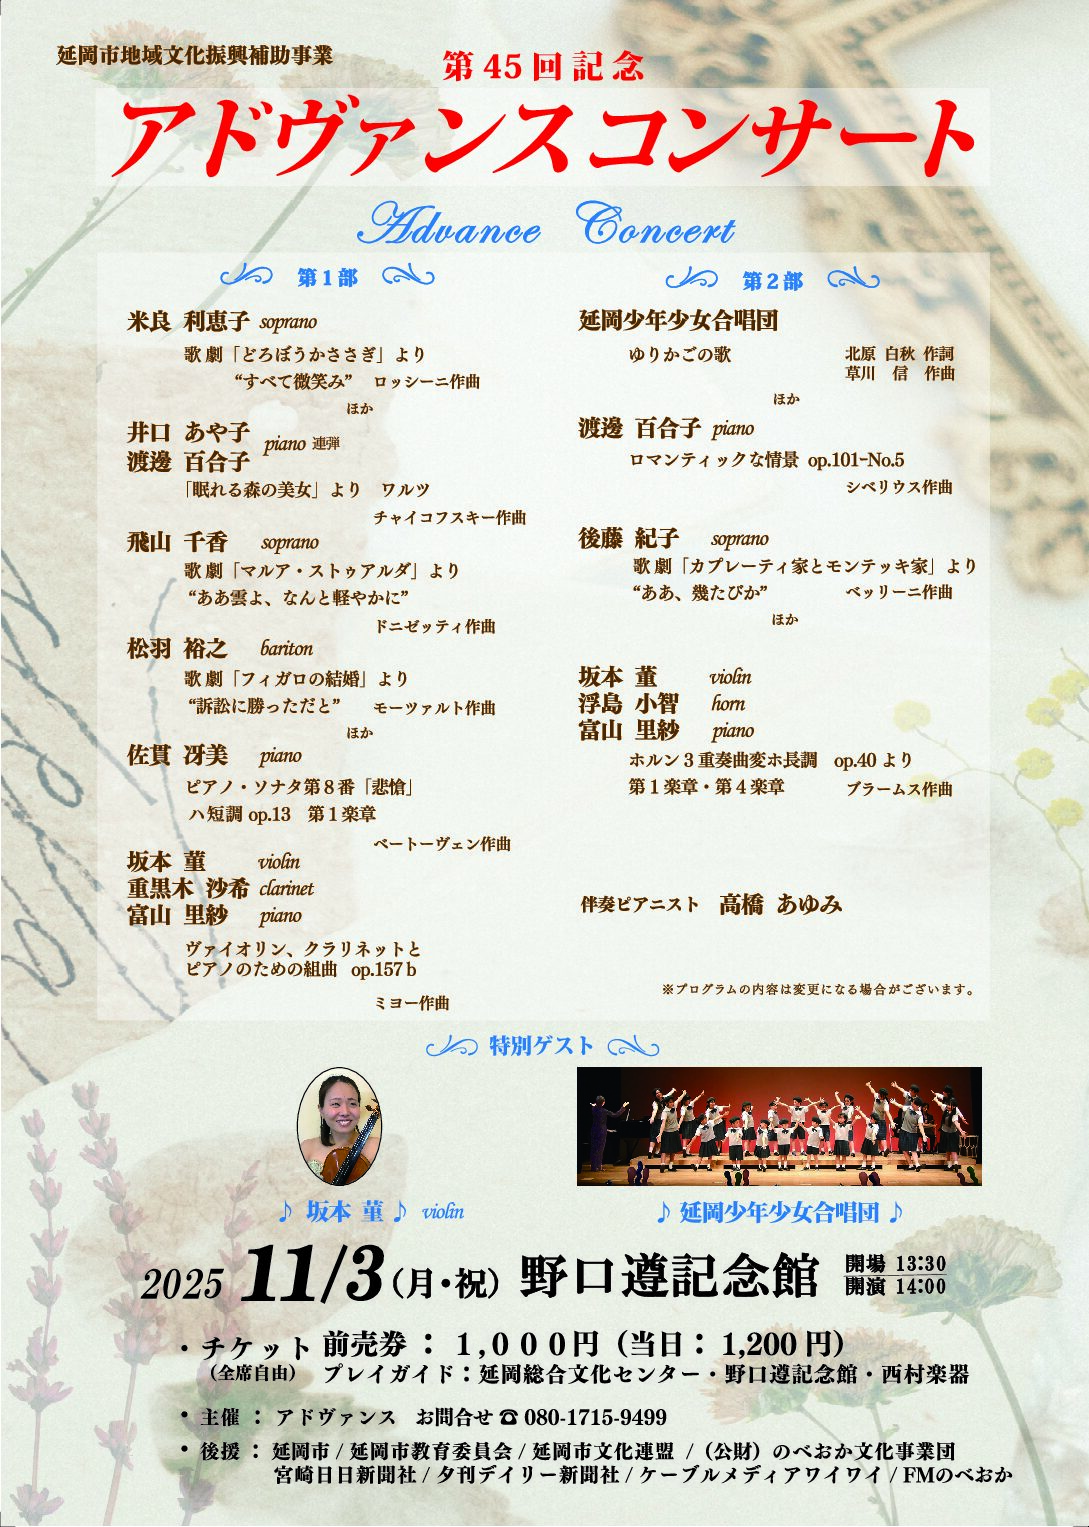 延岡市地域文化振興補助事業
第45回記念
アドヴァンスコンサート
Advance Concert
第1部
米良 利恵子 soprano
歌劇「どろぼうかささぎ」より
“すべて微笑み” ロッシーニ作曲
ほか
井口 あや子
渡邊 百合子 piano 連弾
「眠れる森の美女」より ワルツ
チャイコフスキー作曲
飛山 千香 soprano
歌劇「マルア・ストゥアルダ」より
“ああ雲よ、なんと軽やかに”
ドニゼッティ作曲
松羽 裕之 bariton
歌劇「フィガロの結婚」より
“訴訟に勝っただと” モーツァルト作曲
ほか
佐貫 冴美 piano
ピアノ・ソナタ第8番「悲愴」
ハ短調 op.13 第1楽章
ベートーヴェン作曲
坂本 菫 violin
重黒木 沙希 clarinet
富山 里紗 piano
ヴァイオリン、クラリネットと
ピアノのための組曲 op.157b
ミヨー作曲
第2部
延岡少年少女合唱団
ゆりかごの歌 北原 白秋 作詞
草川 信 作曲
ほか
渡邊 百合子 piano
ロマンティックな情景 op.101-No.5
シベリウス作曲
後藤 紀子 soprano
歌劇「カプレーティ家とモンテッキ家」より
“ああ、幾たびか” ベッリーニ作曲
ほか
坂本 菫 violin
浮島 小智 horn
富山 里紗 piano
ホルン3重奏曲変ホ長調 op.40 より
第1楽章・第4楽章 ブラームス作曲
伴奏ピアニスト 高橋 あゆみ
※プログラムの内容は変更になる場合がございます。
特別ゲスト
♪ 坂本 菫 ♪ violin
♪ 延岡少年少女合唱団 ♪
2025 11/3(月・祝) 野口遵記念館 開場 13:30
開演 14:00
・チケット 前売券 : 1,000円 (当日: 1,200円)
(全席自由) プレイガイド:延岡総合文化センター・野口遵記念館・西村楽器
・主催 : アドヴァンス お問合せ ☎ 080-1715-9499
・後援 : 延岡市 / 延岡市教育委員会 / 延岡市文化連盟 /(公財)のべおか文化事業団
宮崎日日新聞社 / 夕刊デイリー新聞社 / ケーブルメディアワイワイ / FMのべおか